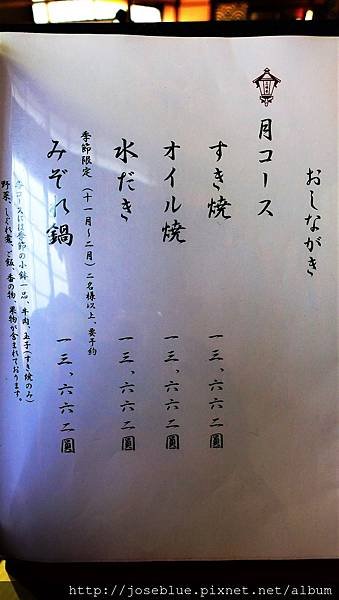 おしながき
月コース
すき焼 一三、六六二圓
オイル焼 一三、六六二圓
水だき 一三、六六二圓
季節限定（十一月～二月）二名様以上、要予約
みぞれ鍋 一三、六六二圓
各コースには季節の小鉢一品、牛肉、玉子（すき焼のみ）
野菜、しぐれ煮、ご飯、香の物、果物が含まれております。
http://joseblue.pixnet.net/album